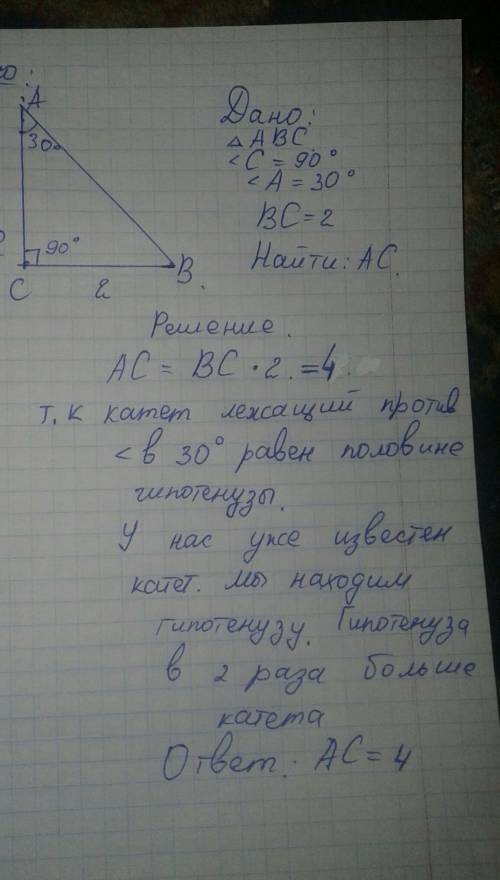 о:
A
30°
90°
C
2
B.
Дано:
△ ABC.
<C = 90°
<A = 30°
BC = 2
Найти: AC.
Решение.
AC = BC • 2. = 4.
т. к катет лежащий против
< в 30° равен половине
гипотенузы.
У нас уже известен
катет. Мы находим
гипотенузу. Гипотенуза
в 2 раза больше
катета
Ответ: AC = 4